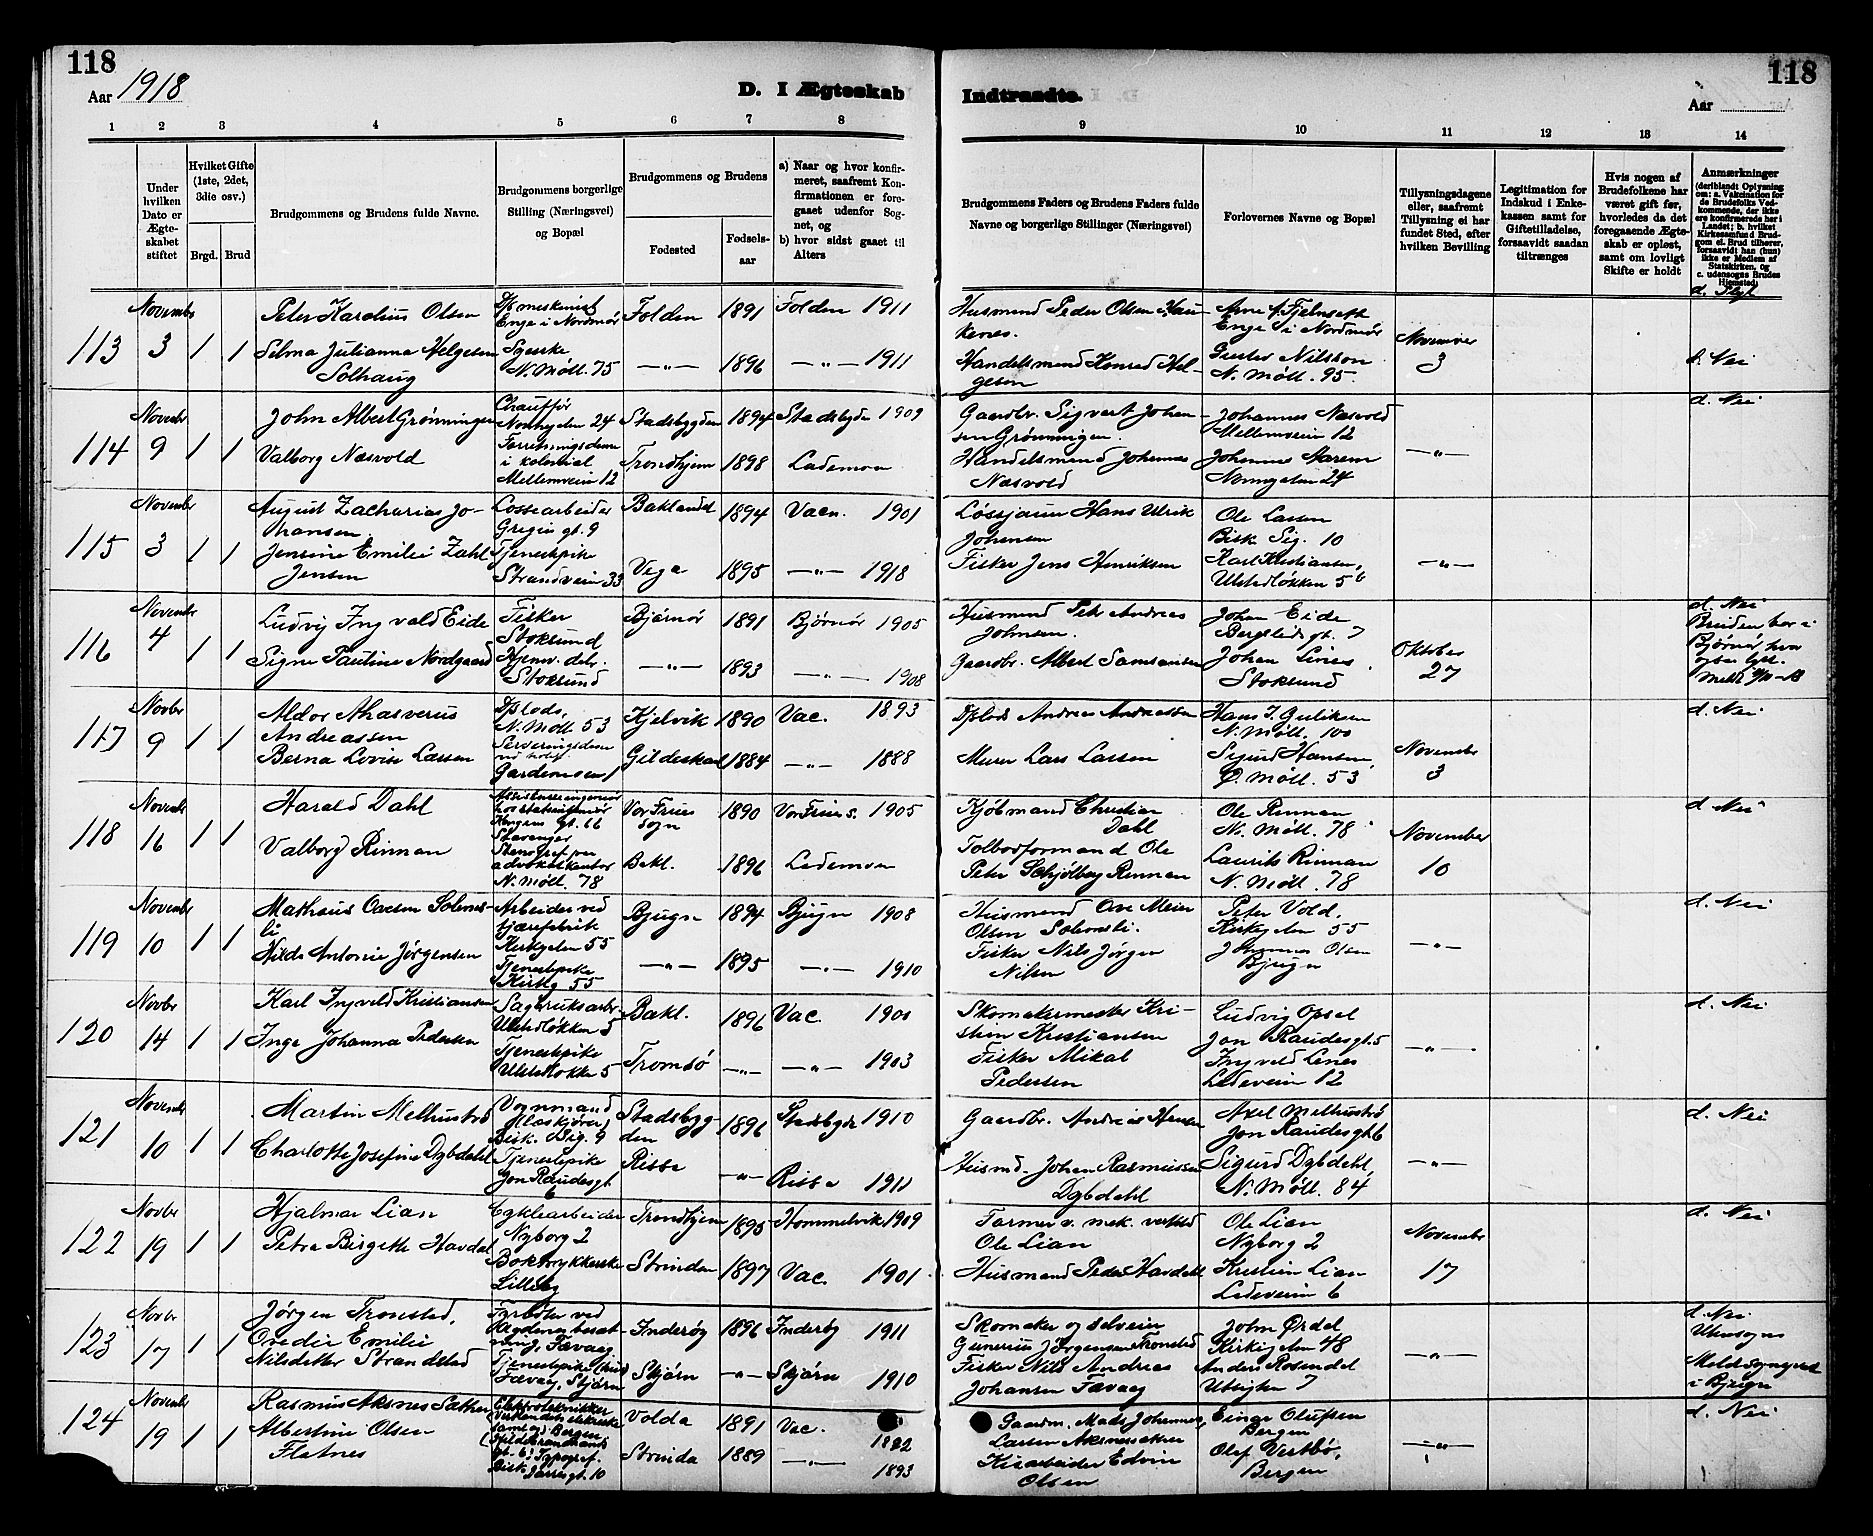 118
118
Aar 1918
D. I Ægteskab
Indtraadte.
Aar
1 2 3 4 5 6 7 8 9 10 11 12 13 14
Under hvilken Dato er Ægteskabet stiftet
Hvilket Gifte (1ste, 2det, 3die osv.)
Brgd. Brud
Brudgommens og Brudens fulde Navne.
Brudgommens borgerlige Stilling (Næringsvei) og Bopæl
Brudgommens og Brudens
Fødested
Fødsels-aar
a) Naar og hvor konfirmeret, saafremt Konfirmationen er foregaaet udenfor Sognet, og
b) hvor sidst gaaet til Alters
Brudgommens Faders og Brudens Faders fulde Navne og borgerlige Stillinger (Næringsvei)
Forlovernes Navne og Bopæl
Tillysningsdagene eller, saafremt Tillysning ei har fundet Sted, efter hvilken Bevilling
Legitimation for Indskud i Enkekassen samt for Giftetilladelse, forsaavidt saadan tiltrænges
Hvis nogen af Brudefolkene har været gift før, hvorledes da det foregaaende Ægteskab er opløst, samt om lovligt Skifte er holdt
Anmærkninger
(deriblandt Oplysning om: a. Vakcination for de Brudefolks Vedkommende, der ikke ere konfirmerede her i Landet; b. hvilket Kirkesamfund Brudgom el. Brud tilhører, forsaavidt han (hun) ikke er Medlem af Statskirken, og c. udensogns Brudes Hjemsted)
113
November 3
1 1
Peter Karelius Olsen
Selma Julianna Helgesen
Solhaug
Enge i Nordmør
Syerske
N. Møll. 75
Folden 1891 Folden 1911
—„— 1896 —„— 1911
Husmand Peder Olsen
Handelsmand Konrad Helgesen
Arne A. Fjelnseth
Enge i Nordmør
Gustav Nilsson
N. Møll. 95.
November
3
b. Nei
114
Novembr 9
1 1
John Albert Grønningen
Valborg Næsvold
Chauffør
Nonnegaten 24
Forretningsdame
i kolonial.
Mellemveien 12
Stadsbygden 1894 Stadsbygde 1909
Trondhjem 1898 Lademoen
Gaardbr. Sigvart Johansen Grønningen.
Handelsmand Johannes
Næsvold
Johannes Næsvold
Mellemveien 12
Johannes Harem
Nonnegaten 24
—„—
d. Nei
115
November 3
1 1
August Zacharias Johansen
Jensine Emilie Zahl
Jensen
Lossearbeider
Gregus gt. 9
Tjenestpike
Strandveien 33
Baklandet 1894 Vacn. 1901
Vega 1895 —„— 1918
Løssjauer Hans Ulrik
Johansen
Fisker Jens Henriksen
Ole Lassen
Bisk Sig. 10
Karl Kristiansen,
Ulstadløkken 5
—„—
116
November 4
1 1
Ludvig Ingvald Eide
Signe Pauline Nordgaard
Fisker
Stoksund
Hjemv. datr.
Stoksund
Bjørnør 1891 Bjørnør 1905
—„— 1893 —„— 1908
Husmand Petr Andreas
Johnsen.
Gaardbr. Albert Samsonsen
Johan Eide
Bergslids gt. 7
Johan Lines
Stoksund
Oktober
27
d. Nei
Bruden bor i
Bjørnør hvor
117
Novbr 9
1 1
Aldor Ahasverus
Andreassen
Berna Lovise Larsen
N. Møll. 53
Serveringsdame
ved hotel
Gardemoen
Kjelvik 1890 Vac. 1893
Gildeskaal 1884 —„— 1888
Andreas Andreassen
Murer Lars Larsen
Hans J. Guliksen
N. Møll. 100
Sigurd Hansen,
Ø. Møll. 53
November
3
d. Nei
118
Novembr 16
1 1
Harald Dahl
Valborg Rinnan
Kongens gt. 66
Stavanger
Stenograf ved
advokatkontor
N. Møll. 78
Vor Frues sogn 1890 Vor Frues s. 1905
Bakl. 1896 Lademoen
Kjøbmand Christian
Dahl
Tolbodformand Ole
Peter Schjølberg Rinnan
Ole Rinnan
N. Møll. 78
Laurits Rinnan
N. Møll. 78
November
10
d Nei
119
November 10
1 1
Mathæus Ovesen Solemsli
Hilda Antonie Jørgensen
Arbeider ved
tjærefabrik
Kirkegaten 55
Tjenestpike
Kirkg 55
Bjugn 1894 Bjugn 1908
—„— 1895 —„— 1910
Husmand Ove Meier
Olsen Solemsli.
Fisker Nils Jørgen
Nilsen
Peter Vold.
Kirkegaten 55
Johannes Olsen
Bjugn
—„—
d. Nei
120
Novbr 14
1 1
Karl Ingvald Kristiansen
Inga Johanna Pedersen
Sagbruksarbr.
Ulstadløkken 5
Tjenestpike
Ulstadløkke 5
Bakl. 1896 Vac. 1901
Tromsø —„— —„— 1903
Skomakermester Kristian Kristiansen
Fisker Mikal
Pedersen
Ludvig Opsal
Jon Raudes gt. 5
Ingvald Lines
Ladeveien 12
—„—
d. Nei
121
Novembr 10
1 1
Martin Melhustrø
Charlotte Josefine Dybdahl
Vognmand
Bisk. Sig. 9
Tjenestpike
Jon Raudesgt
6
Stadsbygden 1896 Stadsbygde 1910
Rissa —„— Rissa 1911
Gaardbr. Andreas Hansen
Husmd. Johan Rasmussen
Dybdahl
Axel Melhustrø
Jon Raudesgt 6
Sigurd Dybdahl,
N. Møll. 84
—„—
d. Nei
122
Novbr 19
1 1
Hjalmar Lian
Petra Birgitte Havdal
Cyklearbeider
Nyborg 2
Boktrykkerske
Lilleby
Trondhjem 1895 Hommelvik 1909
Strinden 1897 Vac. 1901
Former v. mek. verksted
Ole Lian
Husmand Peder Havdahl
Ole Lian
Nyborg 2
Kristian Lian
Ladeveien 6
November
17
d. Nei
123
Novbr 17
1 1
Jørgen Tronstad,
Ovedie Emilie
Nilsdatter Strandstad
Fyrbøter ved
Fævaag
Tjenestepike
Fævaag, Skjørn
Inderøy 1896 Inderøy 1911
Skjørn —„— Skjørn 1910
Skomaker og selveier
Gunerius Jørgensen Tronstad
Fisker Nils Andreas
Johansen Fævaag
John Ørdal
Kirkegaten 48
Anders Rosendal
Utsigten 7
—„—
d. Nei
Utensogns
i Bjugn
124
November 19
1 1
Rasmus Aksnes Sæther
Albertine Olsen
Flatnes
Elektrotekniker
Bergen
gt. 6) Typograf.
Bisk. Darresgt. 10
Volda 1891 Vac.
Strinda 1889 —„— 1893
Gaardm. Mads Johannes
Larsen Aksnessæther
Kisarbeider Edvin
Olsen
Einar Olufsen
Bergen
Olaf Vestbø,
Bergen
—„—
d. Nei